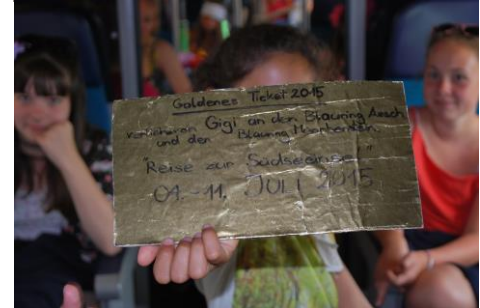 Goldenes Ticket 2015
verliehen von Gigi an den Blauring Aesch
und den Blauring
"Reise zur Südseeinsel"
04.-11. JULI 2015